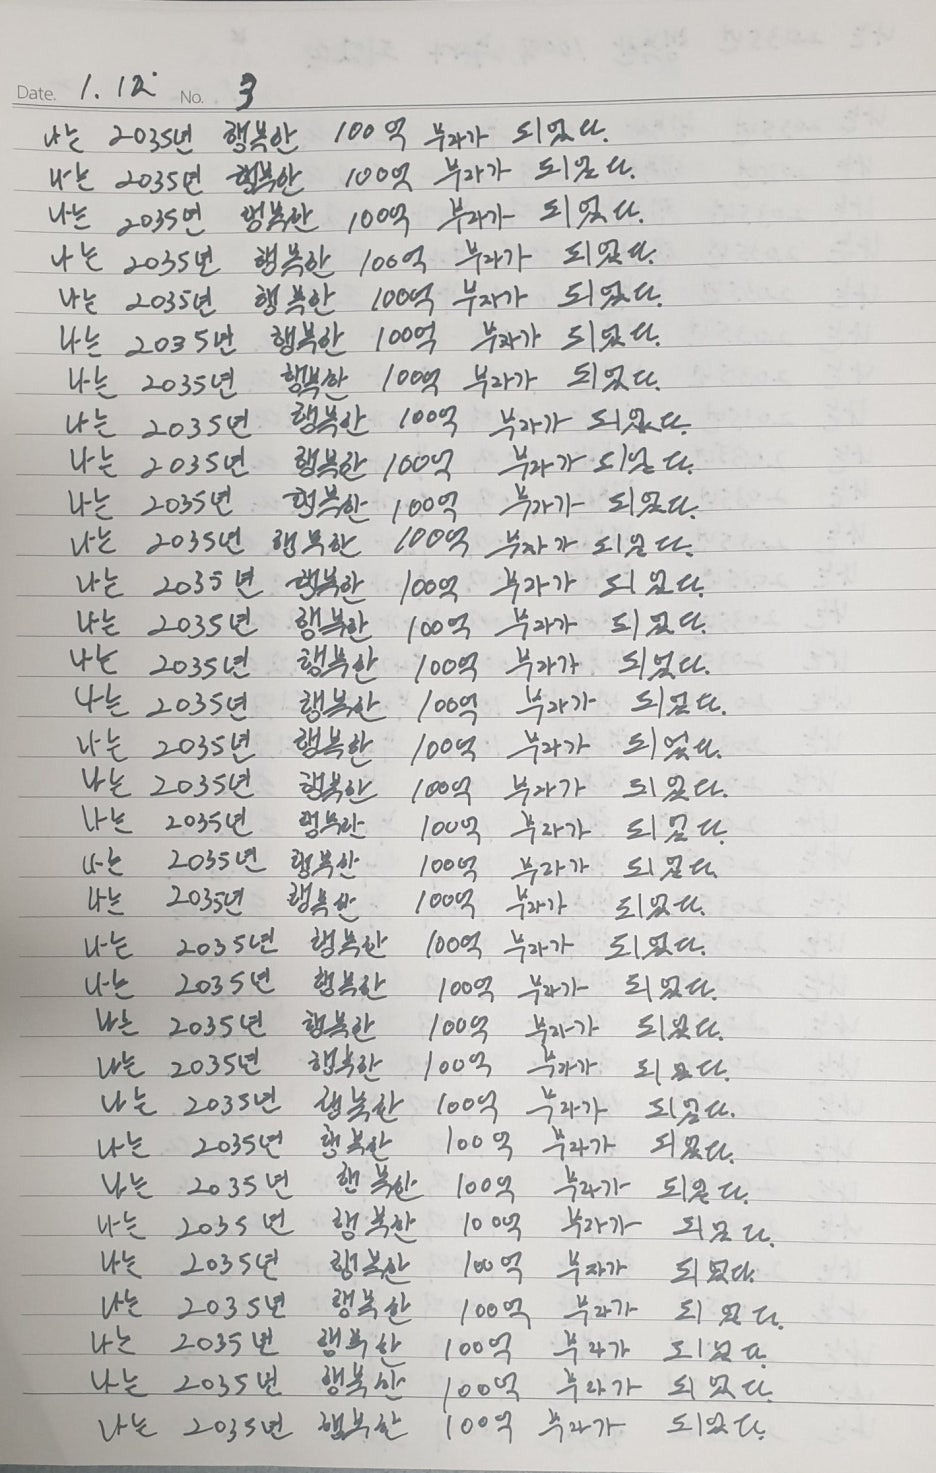 Date. 1. 12. No. 3
나는 2035년 행복한 100억 부자가 되었다.
나는 2035년 행복한 100억 부자가 되었다.
나는 2035년 행복한 100억 부자가 되었다.
나는 2035년 행복한 100억 부자가 되었다.
나는 2035년 행복한 100억 부자가 되었다.
나는 2035년 행복한 100억 부자가 되었다.
나는 2035년 행복한 100억 부자가 되었다.
나는 2035년 행복한 100억 부자가 되었다.
나는 2035년 행복한 100억 부자가 되었다.
나는 2035년 행복한 100억 부자가 되었다.
나는 2035년 행복한 100억 부자가 되었다.
나는 2035년 행복한 100억 부자가 되었다.
나는 2035년 행복한 100억 부자가 되었다.
나는 2035년 행복한 100억 부자가 되었다.
나는 2035년 행복한 100억 부자가 되었다.
나는 2035년 행복한 100억 부자가 되었다.
나는 2035년 행복한 100억 부자가 되었다.
나는 2035년 행복한 100억 부자가 되었다.
나는 2035년 행복한 100억 부자가 되었다.
나는 2035년 행복한 100억 부자가 되었다.
나는 2035년 행복한 100억 부자가 되었다.
나는 2035년 행복한 100억 부자가 되었다.
나는 2035년 행복한 100억 부자가 되었다.
나는 2035년 행복한 100억 부자가 되었다.
나는 2035년 행복한 100억 부자가 되었다.
나는 2035년 행복한 100억 부자가 되었다.
나는 2035년 행복한 100억 부자가 되었다.
나는 2035년 행복한 100억 부자가 되었다.
나는 2035년 행복한 100억 부자가 되었다.
나는 2035년 행복한 100억 부자가 되었다.
나는 2035년 행복한 100억 부자가 되었다.
나는 2035년 행복한 100억 부자가 되었다.
나는 2035년 행복한 100억 부자가 되었다.